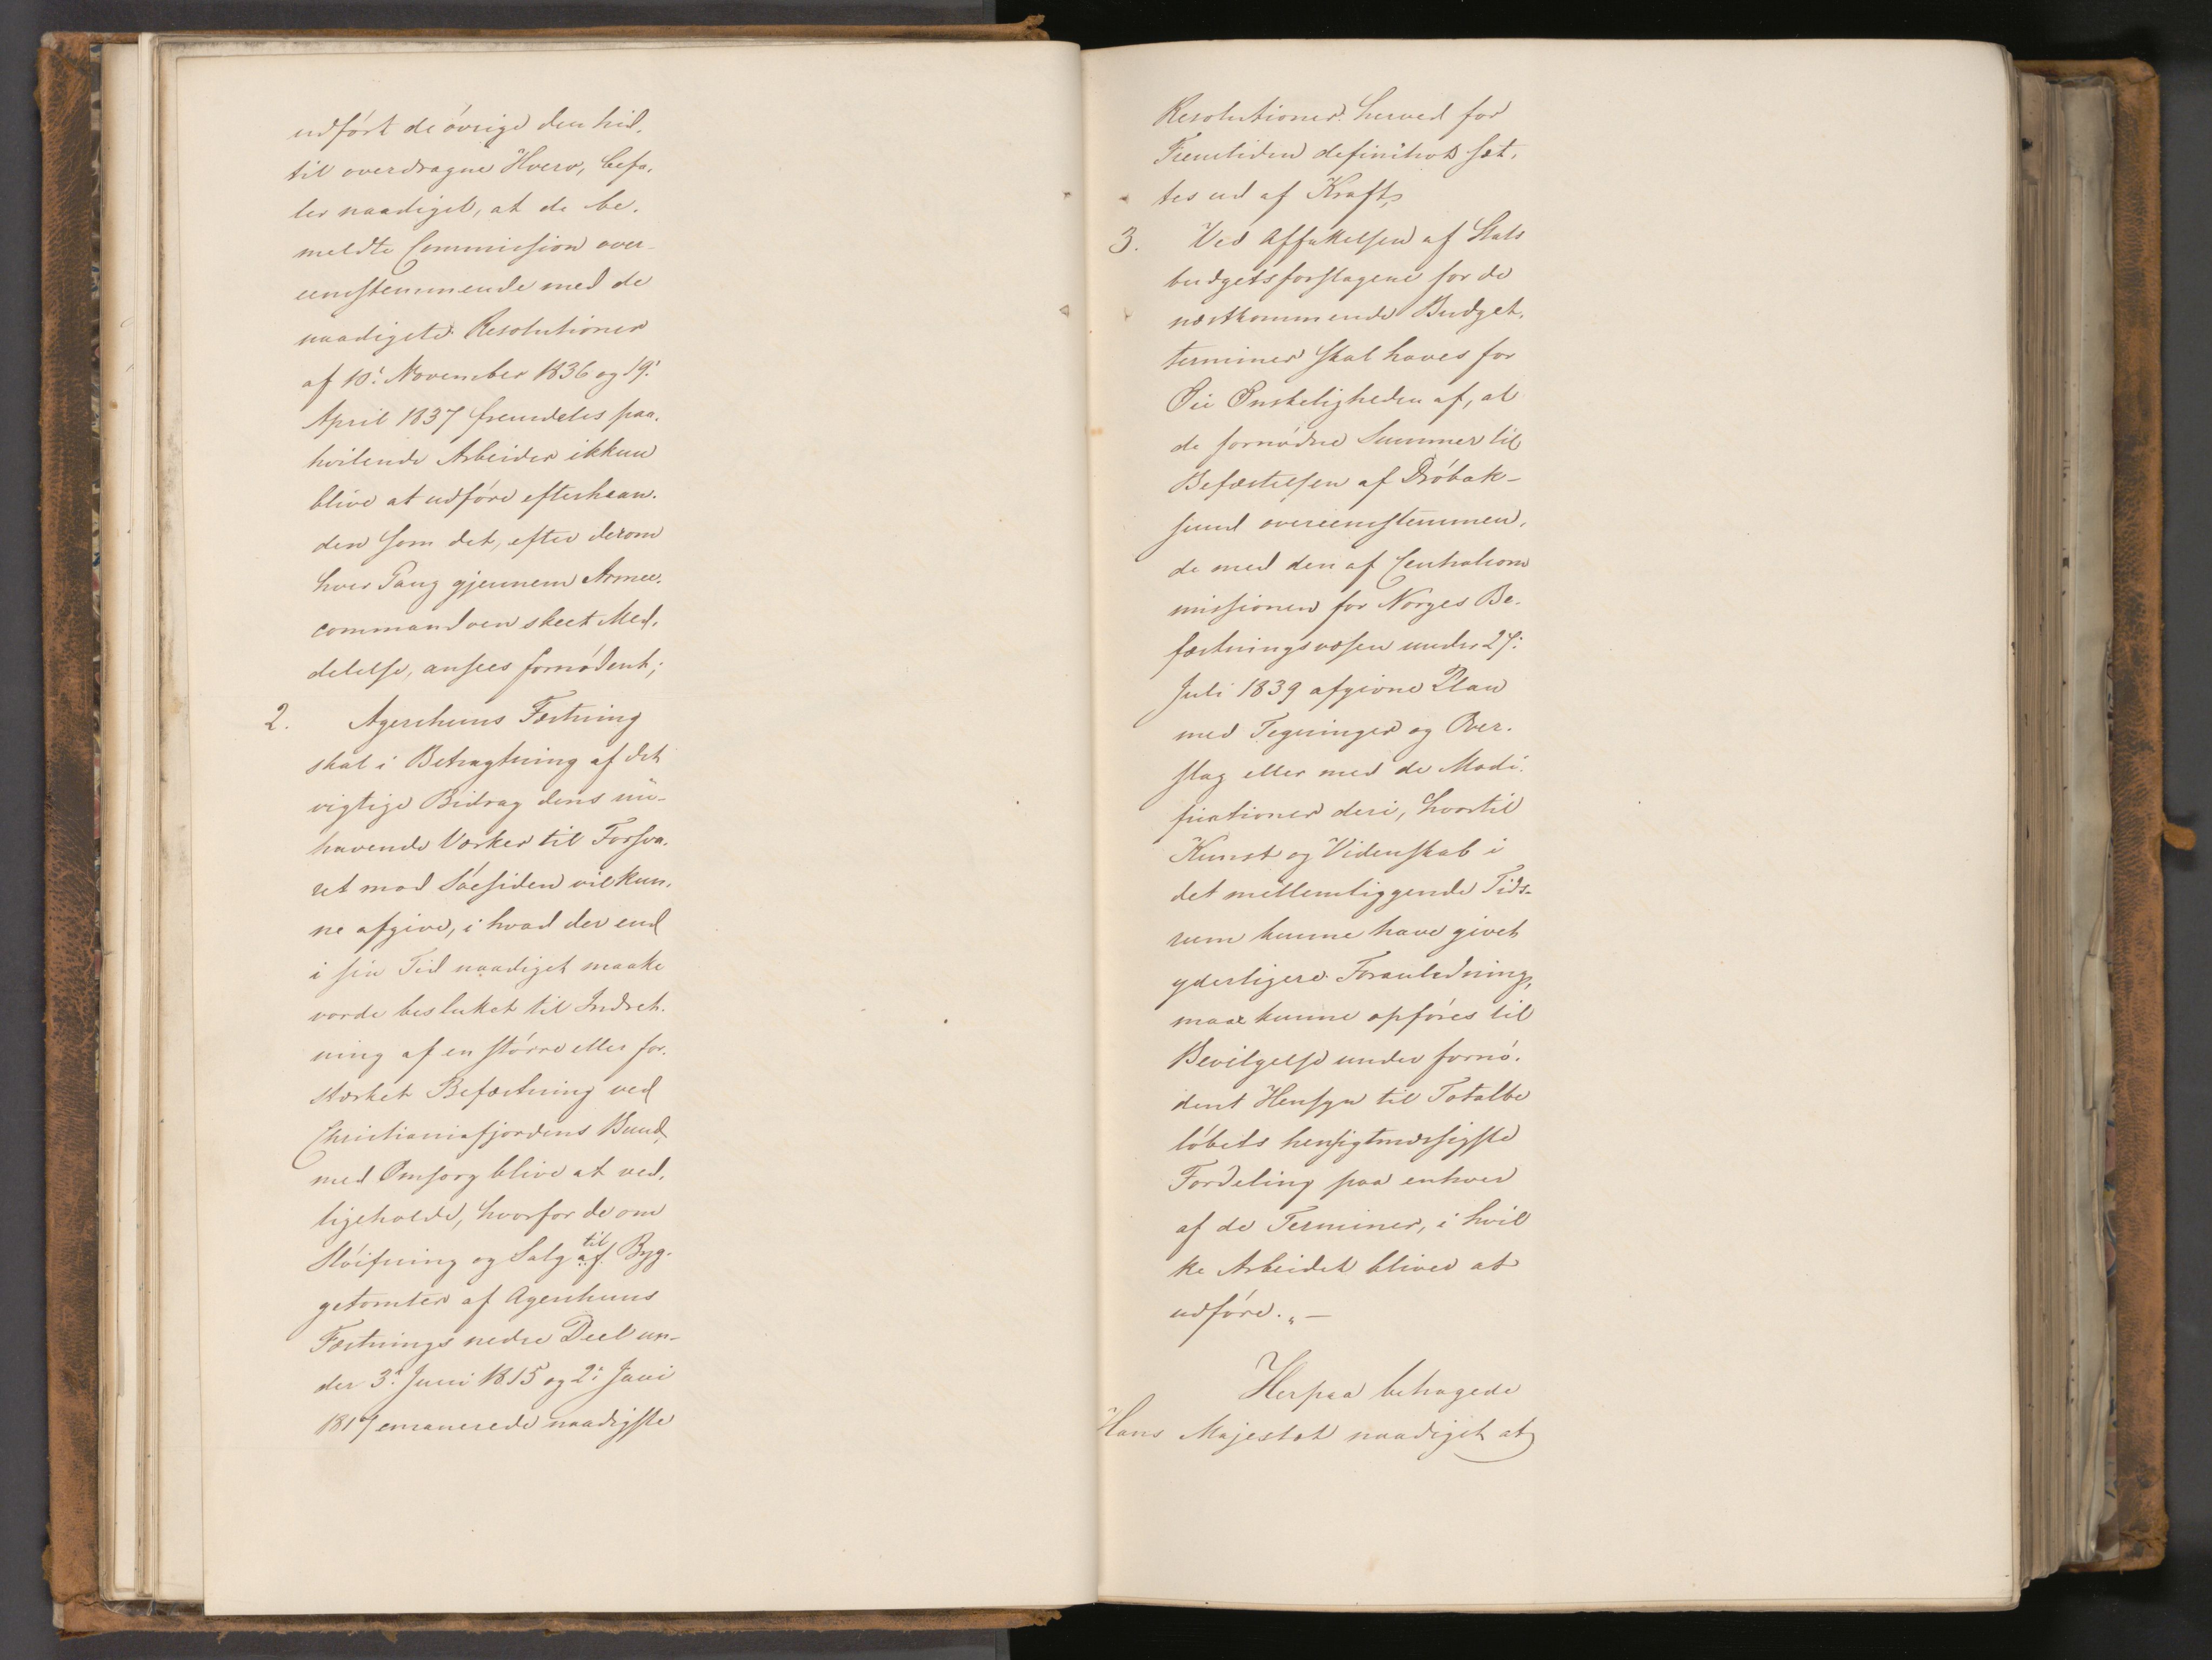 udført de øvrige den hid,
til overdragne Hverv, befa,
les naadigst, at de be,
meldte Commission over-
eenstemmende med de
naadigste Resolutioner
af 10: November 1836 og 19:
April 1837 fremdeles paa,
hvilende Arbeider ikkun
blive at udføre efterhaan,
den som det, efter derom
hver Gang gjennem Armee,
commandoen skeet Med,
delelse, ansees fornødent;
2. Agershuus Fæstning
skal i Betragtning af det
vigtige Bidrag dens nu-
havende Værker til Forsva,
ret mod Søesiden vil kun,
ne afgive, i hvad der end
i sin Tid naadigst maatte
vorde besluttet til Indret,
ning af en større eller for,
stærket Befæstning ved
Christianiafjordens Bund,
med Omsorg blive at ved,
ligeholde, hvorfor de om
Sløifning og Salg til af Byg-
getomter af Agershuus
Fæstnings nedre Deel un-
der 3: Juni 1815 og 2: Juni
1817 emanerede naadigste
Resolutioner herved for
Fremtiden definitivt sæt,
tes ud af Kraft,
3. Ved Affattelsen af Stats
budgetsforslagene for de
næstkommende Budget,
terminer skal haves for
Øie Ønskeligheden af, at
de fornødne Summer til
Befæstelsen af Drøbak-
sund overeenstemmen,
de med den af Centralcom
missionen for Norges Be-
fæstningsvæsen under 27:
Juli 1839 afgivne Plan
med Tegninger og Over-
slag eller med de Modi-
ficationer deri, hvortil
Kunst og Videnskab i
det mellemliggende Tids-
rum kunne have givet
yderligere Foranledning,
maae kunne opføres til
Bevilgelse under fornø-
dent Hensyn til Totalbe
løbets hensigtmæssigste
Fordeling paa enhver
af de Terminer, i hvil
ke Arbeidet bliver at
udføre." —
Herpaa behagede
Hans Majestæt naadigst at